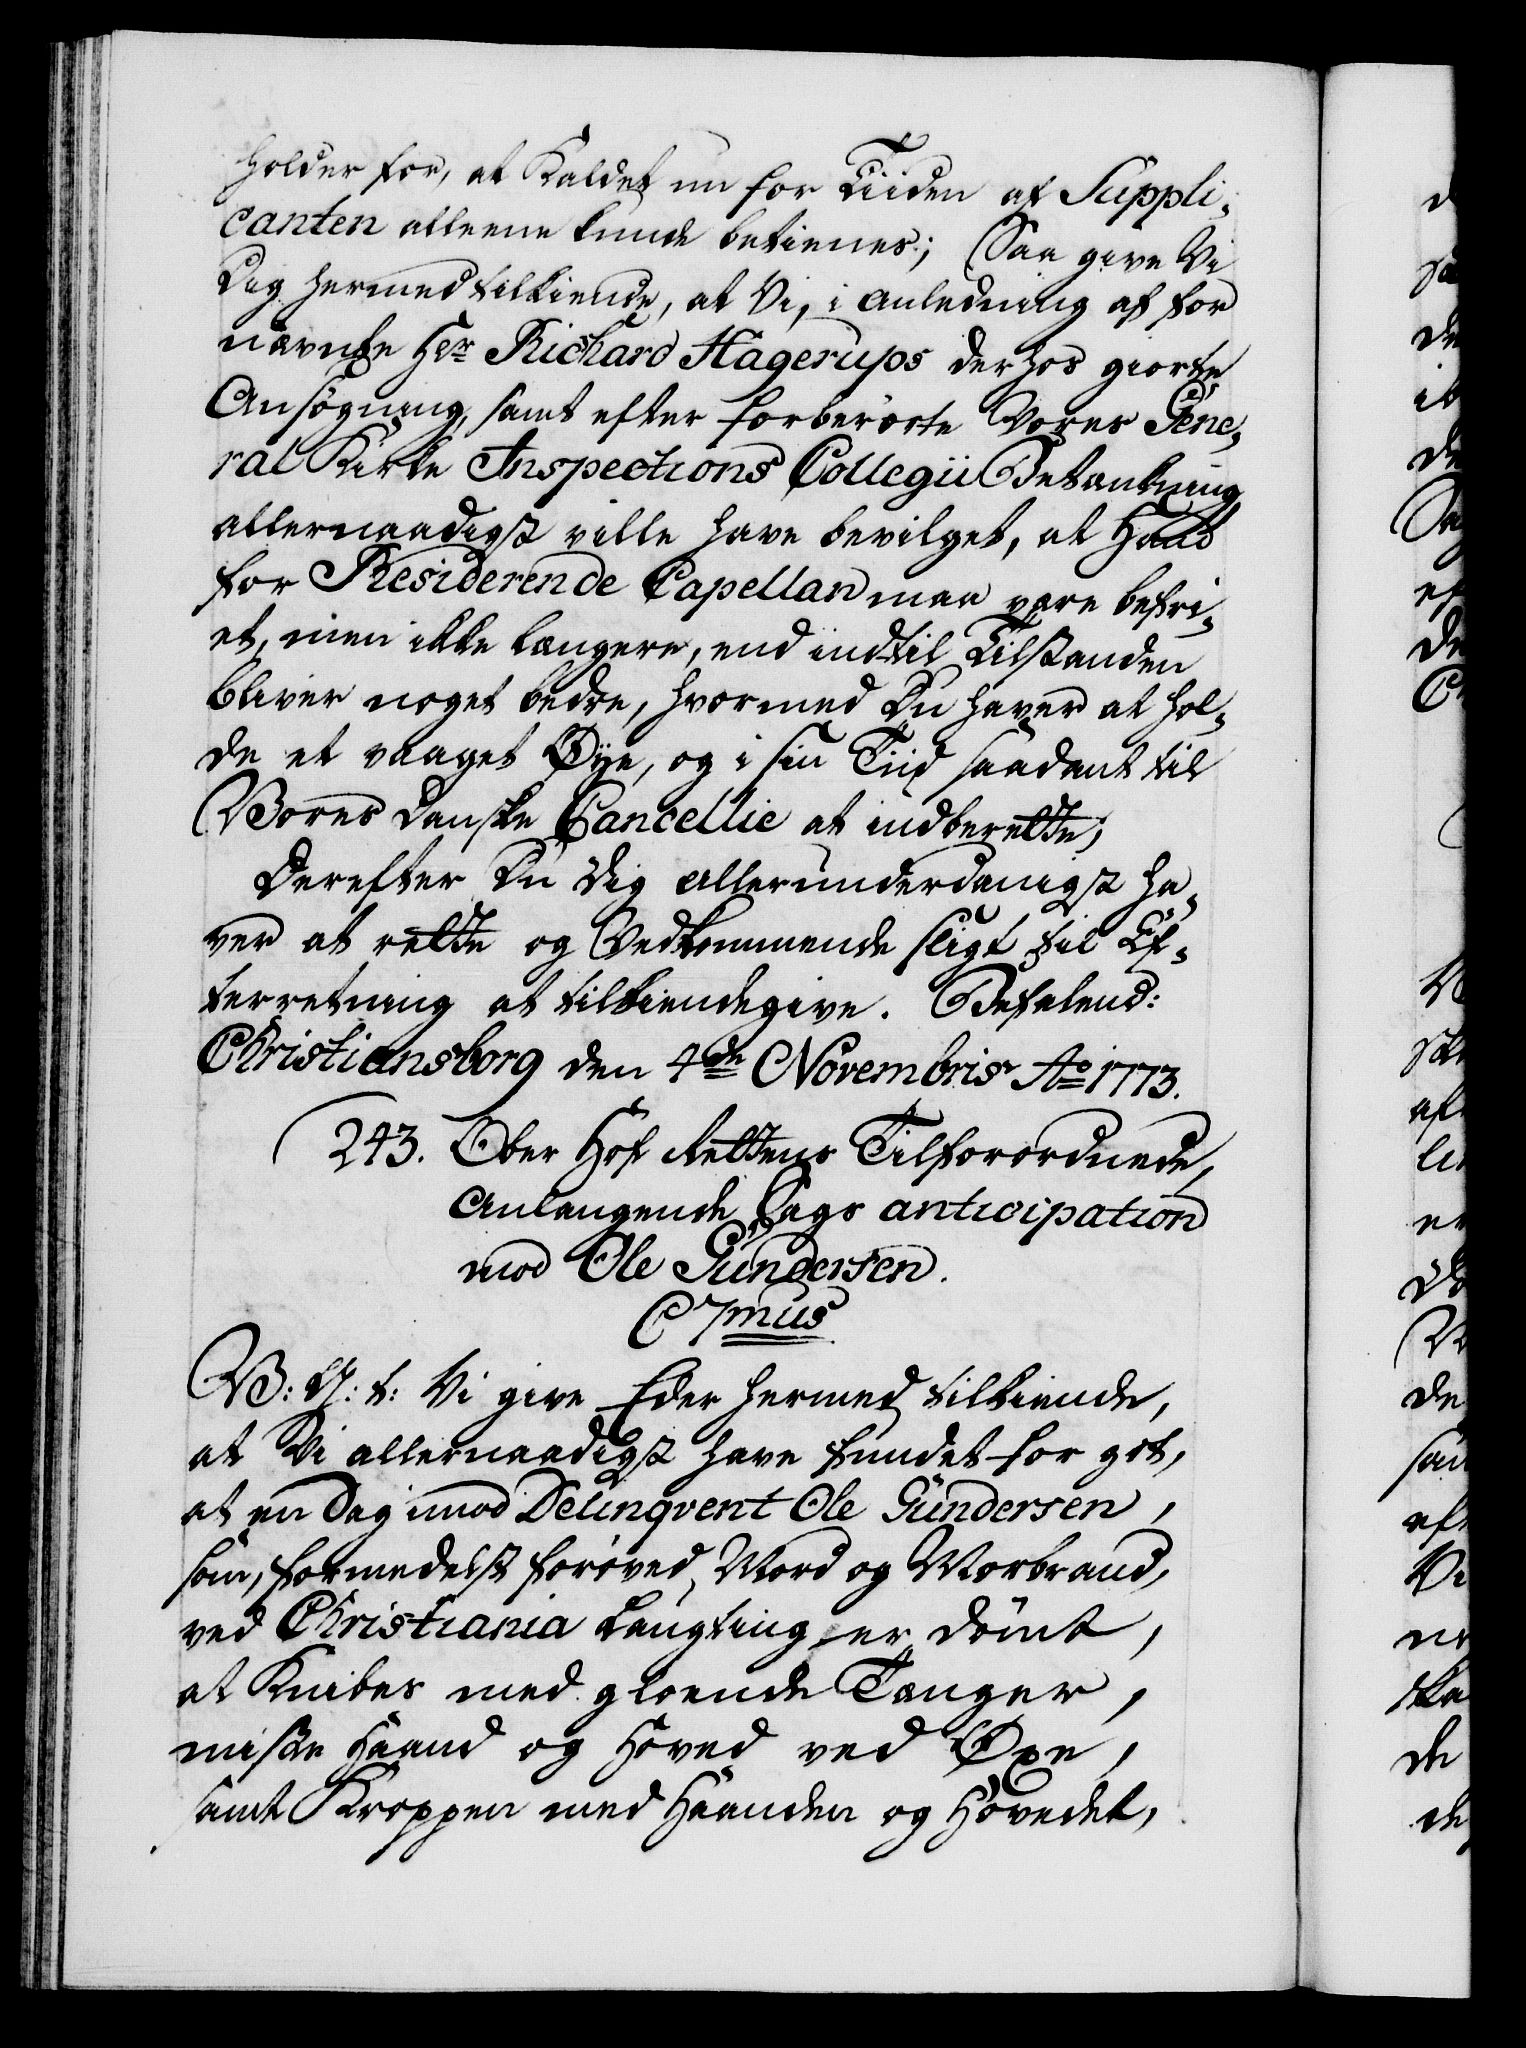 holder for, at Kaldet nu for Tiiden af Suppli-
canten alleene kunde betienes; Saa give Vi
Dig hermed tilkiende, at Vi, i Anledning af for
nævnte Hr Richard Hagerups derhos giorte
Ansøgning, samt efter forberørte Vores Gene-
ral Kirke Inspections Collegii Betænkning
allernaadigst ville have bevilget, at Hand
for Residerende Capellan maa være befri-
et, men ikke længere, end indtil Tilstanden
bliver noget bedre, hvormed Du haver at hol-
de et vaaget Øye, og i sin Tiid saadant til
Vores Danske Cancellie at indberette;
Derefter Du Dig allerunderdanigst ha-
ver at rette og Vedkommende sligt til Ef-
terretning at tilkiendegive. Befalend:
Christiansborg den 4de Novembris Ao 1773.
243. Ober Hof Rettens Tilforordnede,
Anlangende Sags anticipation
mod Ole Gundersen.
C 7mus
V: G: t: Vi give Eder hermed tilkiende,
at Vi allernaadigst have fundet for got,
at en Sag imod Delinqvent Ole Gundersen,
som, formedelst forøved Mord og Morbrand,
ved Christiania Laugting er dömt,
at Knibes med gloende Tænger,
miste Haand og Hoved ved Øxe,
samt Kroppen med Haanden og Hovedet,